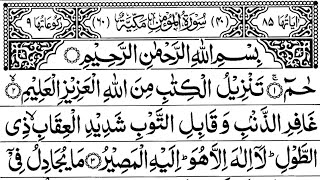 اٰیَاتُهَا ٨٥ (٤٠) سُوْرَةُ الْمُؤْمِنِ مَكِّیَّةٌ (٦٠) رُكُوْعَاتُهَا ٩
بِسْمِ اللهِ الرَّحْمٰنِ الرَّحِیْمِ
حٰمٓ ۚ﴿١﴾ تَنْزِیْلُ الْكِتٰبِ مِنَ اللهِ الْعَزِیْزِ الْعَلِیْمِ ۙ﴿٢﴾
غَافِرِ الذَّنْۢبِ وَ قَابِلِ التَّوْبِ شَدِیْدِ الْعِقَابِ ۙ ذِی
الطَّوْلِ ؕ لَاۤ اِلٰهَ اِلَّا هُوَ ؕ اِلَیْهِ الْمَصِیْرُ ﴿٣﴾ مَا یُجَادِلُ فِیْۤ